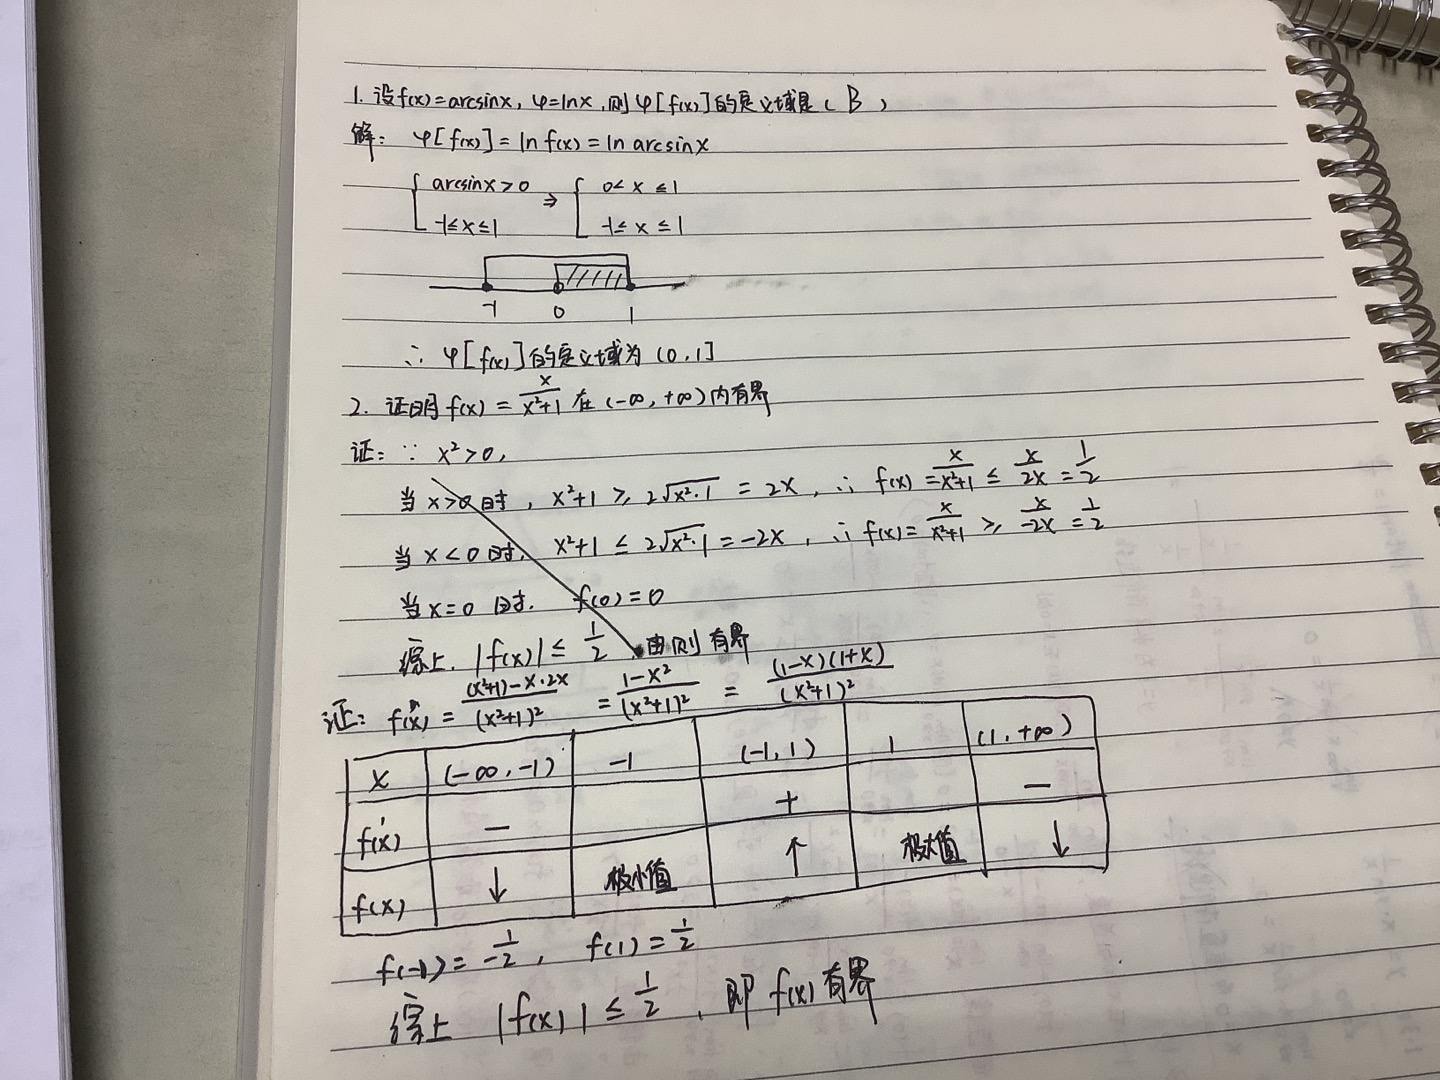 1. 设f(x)=arcsinx, φ=lnx, 则φ[f(x)]的定义域是( B )
解: φ[f(x)]=ln f(x)=ln arcsinx
{ arcsinx>0 ⇒ { 0<x≤1
-1≤x≤1 -1≤x≤1
-1 0 1
∴ φ[f(x)]的定义域为(0,1]
2. 证明f(x)=x/(x²+1) 在(-∞,+∞)内有界
证: ∵ x²>0,
当x>0时, x²+1 ≥ 2√(x²·1) = 2x, ∴ f(x)=x/(x²+1) ≤ x/2x = 1/2
当x<0时, x²+1 ≤ 2√(x²·1) = -2x, ∴ f(x)=x/(x²+1) ≥ x/-2x = 1/2
当x=0时. f(0)=0
综上. |f(x)| ≤ 1/2, 则有界
证: f'(x) = ((x²+1)-x·2x)/(x²+1)² = (1-x²)/(x²+1)² = (1-x)(1+x)/(x²+1)²
x (-∞,-1) -1 (-1,1) 1 (1,+∞)
f'(x) − + −
f(x) ↓ 极小值 ↑ 极大值 ↓
f(-1)=1/-2, f(1)=1/2
综上 |f(x)| ≤ 1/2, 即f(x)有界